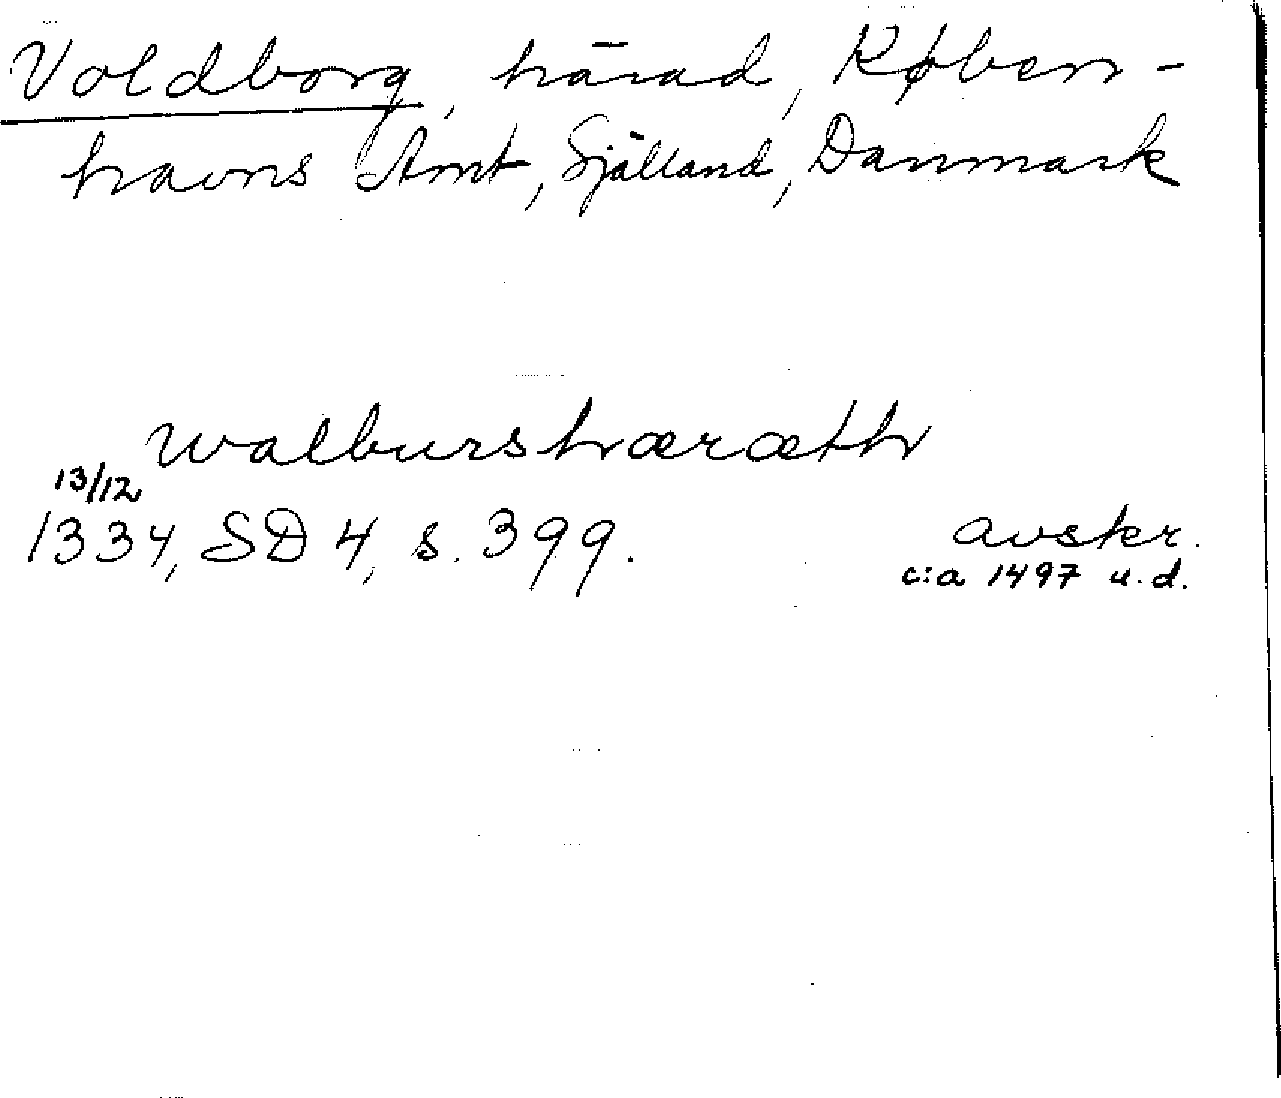 Voldborg, härad, Køben-
havns Amt, Själland, Danmark
walburshæræth
13/12
1334, SD 4, s. 399.
avskr.
c:a 1497 u.d.